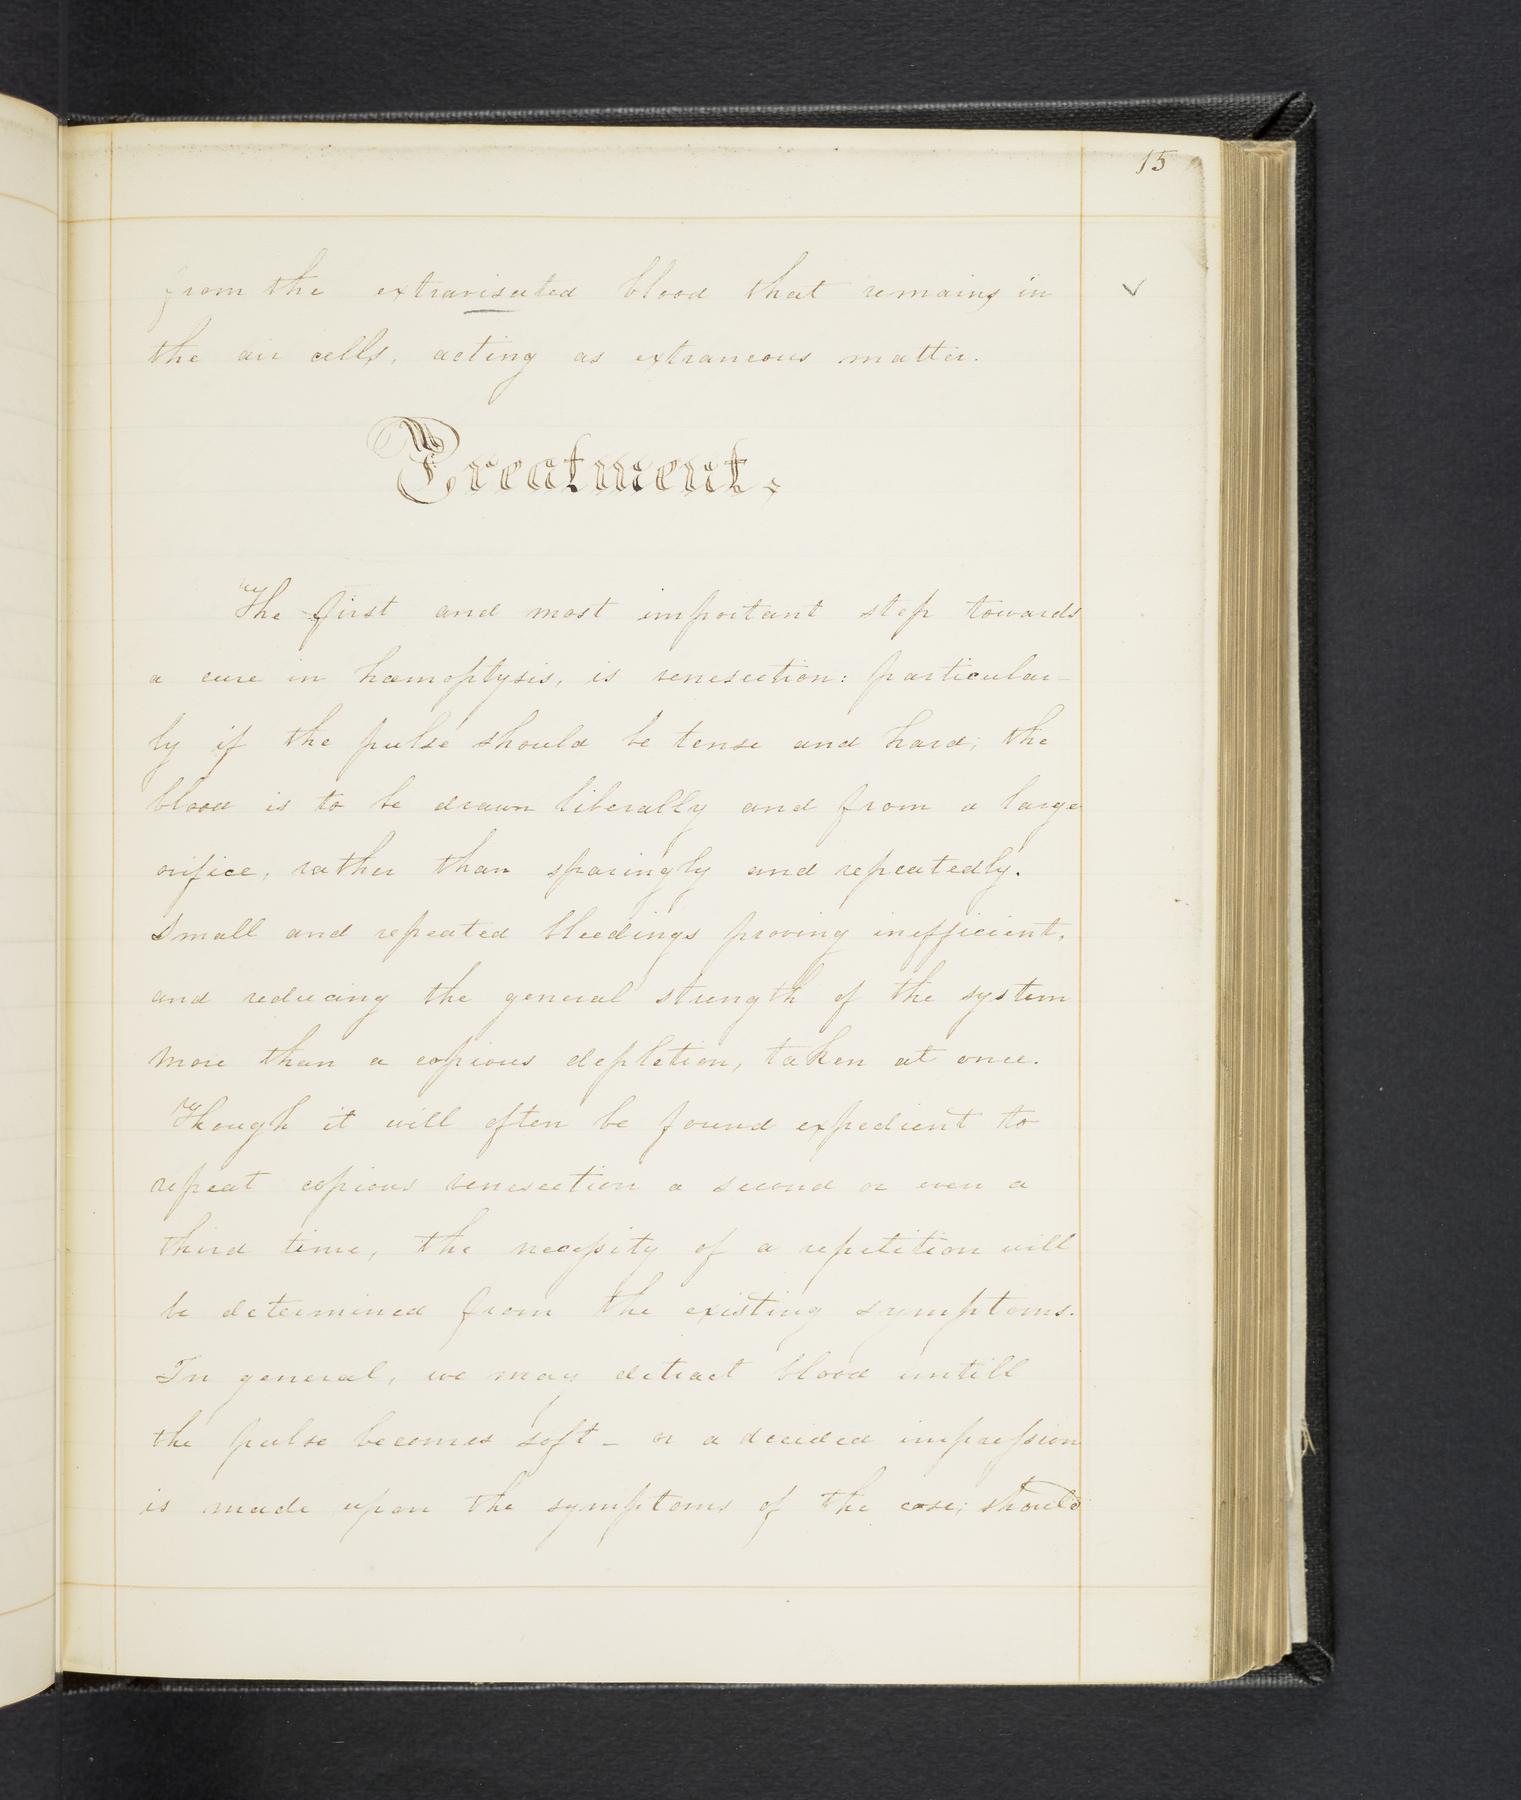 15
from the extravisated blood that remains in
the air cells, acting as extraneous matter.
Treatment.
The first and most important step towards
a cure in hæmoptysis, is venesection: particular-
ly if the pulse should be tense and hard; the
blood is to be drawn liberally and from a large
orifice, rather than sparingly and repeatedly.
Small and repeated bleedings proving inefficient,
and reducing the general strength of the system
more than a copious depletion, taken at once.
Though it will often be found expedient to
repeat copious venesection a second or even a
third time, the necessity of a repetition will
be determined from the existing symptoms.
In general, we may detract blood untill
the pulse becomes soft - or a decided impression
is made upon the symptoms of the case; should